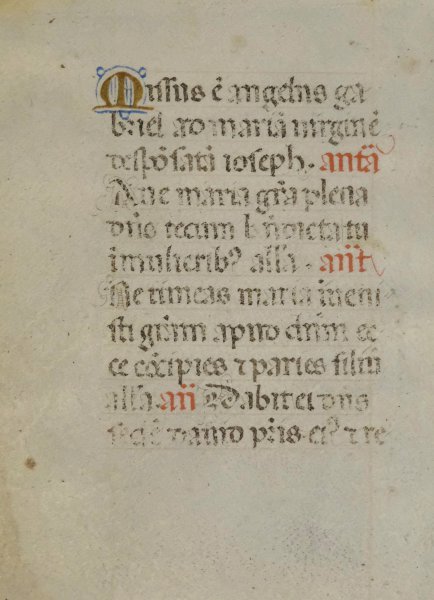 Missus ē angelus ga
briel ad mariā uirginē
despōsatā ioseph. antā
Aue maria grā plena
dn̄s tecum bn̄dicta tu
in mulierib9 all'a. an̄t
Ne timeas maria inueni
sti grām apud dn̄m ec
ce cōcipies ⁊ paries filiū
all'a an̄ Dabit ei dn̄s
sedē dauid pr̄is ei9 ⁊ re